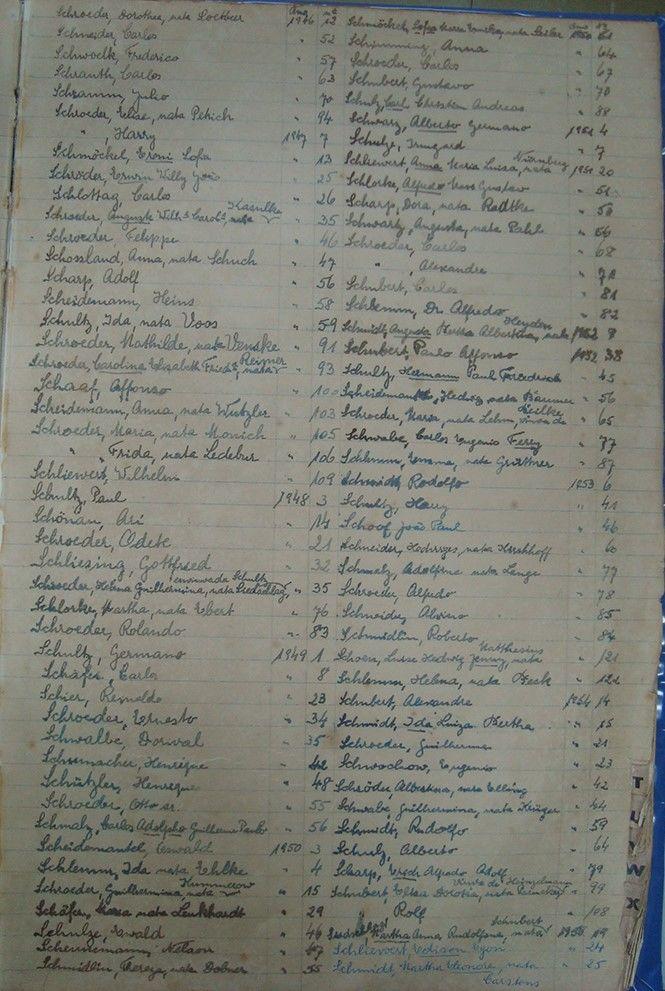 Schroeder, Dorothea, nata Loetbeer 1946 12
Schneider, Carlos " 52
Schwodk, Frederico " 57
Schrauth, Carlos " 63
Schramm, Julio " 70
Schroeder, Elise, nata Petrich " 94
", Harry 1947 7
Schmöckel, Eroni Sofa " 13
Schröder, Erwin Willy João " 25
Schlottag, Carlos " 26
Schroeder, Auguste Wilh. Carol., nata Kasulke " 35
Schroeder, Felippe " 46
Schossland, Anna, nata Schuch " 47
Scharp, Adolf " 56
Scheidemann, Heins " 58
Schultz, Ida, nata Voos " 59
Schroeder, Mathilde, nata Venske " 91
Schroeder, Carolina Elisabeth Fried., nata Reimer " 93
Schaaf, Affonso " 100
Scheidemann, Anna, nata Wutzler " 103
Schroeder, Maria, nata Monich " 105
" Frida, nata Ledebur " 106
Schliewert, Wilhelm " 109
Schultz, Paul 1948 3
Schönau, Ari " 14
Schroeder, Odete " 21
Schliesing, Gottfried " 32
Schroeder, Helena Guilhermina, nata " 35
Schlorke, Martha, nata Ebert " 76
Schroeder, Rolando " 83
Schultz, Germano 1949 1
Schäfer, Carlos " 8
Schier, Reinoldo " 23
Schroeder, Ernesto " 34
Schwalbe, Dorival " 35
Schumacher, Henrique " 42
Schützler, Henrique " 48
Schroeder, Otto sr. " 55
Schmalz, Carlos Adolpho Guilherme Paulo " 56
Scheidemantel, Oswald 1950 3
Schlemm, Ida nata Ehlke " 4
Schroeder, Guilhermina, nata Kummrow " 15
Schäfer, Rosa nata Lenkhardt " 29
Schulze, Ewald " 46
Scheunemann, Nelson " 47
Schmidlin, Thereza, nata Dobner " 55
Schmöckel, Sofa
Schimming, Anna " 64
Schroeder, Carlos " 67
Schubert, Gustavo " 70
Schulz, Carl Christian Andreas " 88
Schwarz, Alberto Germano 1951 4
Schulze, Irmgard " 7
Schliewert, Anna Maria Luisa, nata Nürnberg 1951 20
Schlorke, Alfredo Gustav " 51
Scharp, Dora, nata Radtke " 58
Schwartz, Augusta, nata Pahl " 66
Schroeder, Carlos " 68
", Alexandre "
Schubert, Carlos " 81
Schlemm, Dr. Alfredo " 82
Schmidt, Augusta Bertha Albertina, nata Heyden 1952 8
Schubert, Paulo Affonso 1952 38
Schultz, Hermann Paul Friederich " 45
Hedwig nata Baumer " 56
Schroeder, Maria, nata Lehm, viuva de " 65
Schwabe, Carlos Eugenio Ferry " 77
Schlemm, Emma, nata Grüttner " 87
Schmidt, Rodolfo 1953 6
Schultz, Harry " 41
Schoof João Paul " 46
Schneider, Hedwiges, nata Hershhoff " 60
Schmalz, Adolfine nata Lange " 77
Schroeder, Alfredo " 78
Schneider, Alvino " 85
Schmidlin, Roberto " 86
Luise Hedwig Jenny, nata Matthesius " 121
Schlemm, Helena, nata Beck " 122
Schubert, Alexandre 1954 14
Schmidt, Ida Luiza Bertha " 15
Schroeder, Guilherme " 21
Schwochow, Eugenio " 23
Schröder Albertina, nata Elling " 42
Schwabe, Guilhermina, nata Krüger " 44
Schmidt, Rudolfo " 59
Schulz, Alberto " 64
Scharp, Erich Alfredo Adolf " 79
Schubert, Elsa Dorothea, nata " 99
Rolf " 108
Martha Anna Rudolfine, nata Schubert 1955 19
Schlievert, Edison Egon " 24
Schmidt, Martha Eleonore, nata " 25
Carstens
T
U
W
X